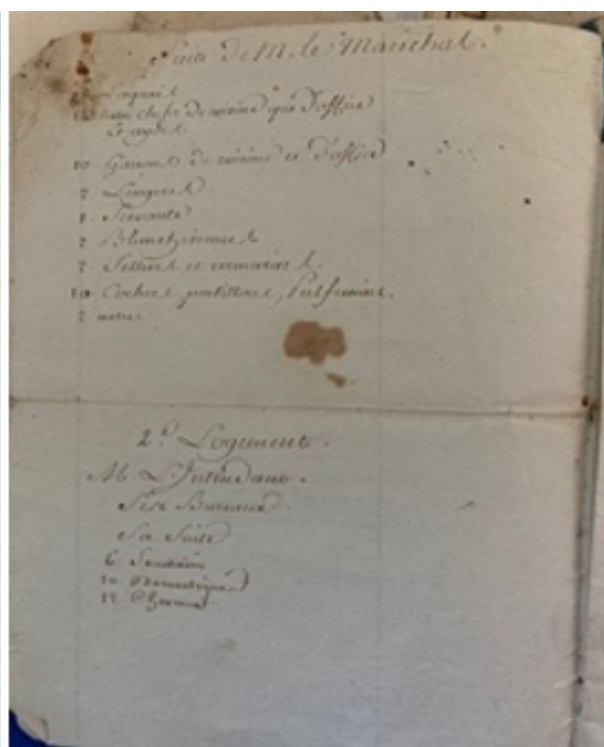 Suite de M. le Maréchal.
Laquais
chefs de cuisine que d'office
Et aydes
10. Garçons de cuisine et d'office
2. Lingeres
1. Servante
2. Blanchisseuses
2. Selliers et
10. Cochers, postillons, Palfreniers.
2.
2.e Logement.
M. L'Intendant.
Ses Bureaux
Sa Suite
6
10. Domestiques
12. Chevaux